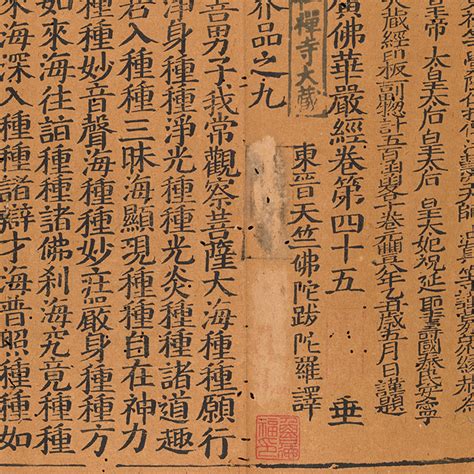 皇帝 太皇太后 皇太后 皇太妃祝延 聖壽國泰民安寧
大藏經印板副總計五百函 十卷 八年乙丑歲五月日謹題
廣佛華嚴經卷第四十五 垂
禪寺大藏
東晉天竺佛陀跋陀羅譯
界品之九
善男子我常觀察菩薩大海種種願行
淨身種種淨光種種光炎種種諸道趣
若入種種三昧海顯現種種自在神力
種種妙音聲海種種妙莊嚴身種種方
如來海往詣種種諸佛刹海究竟種種
海深入種種諸辯才海普照種種如